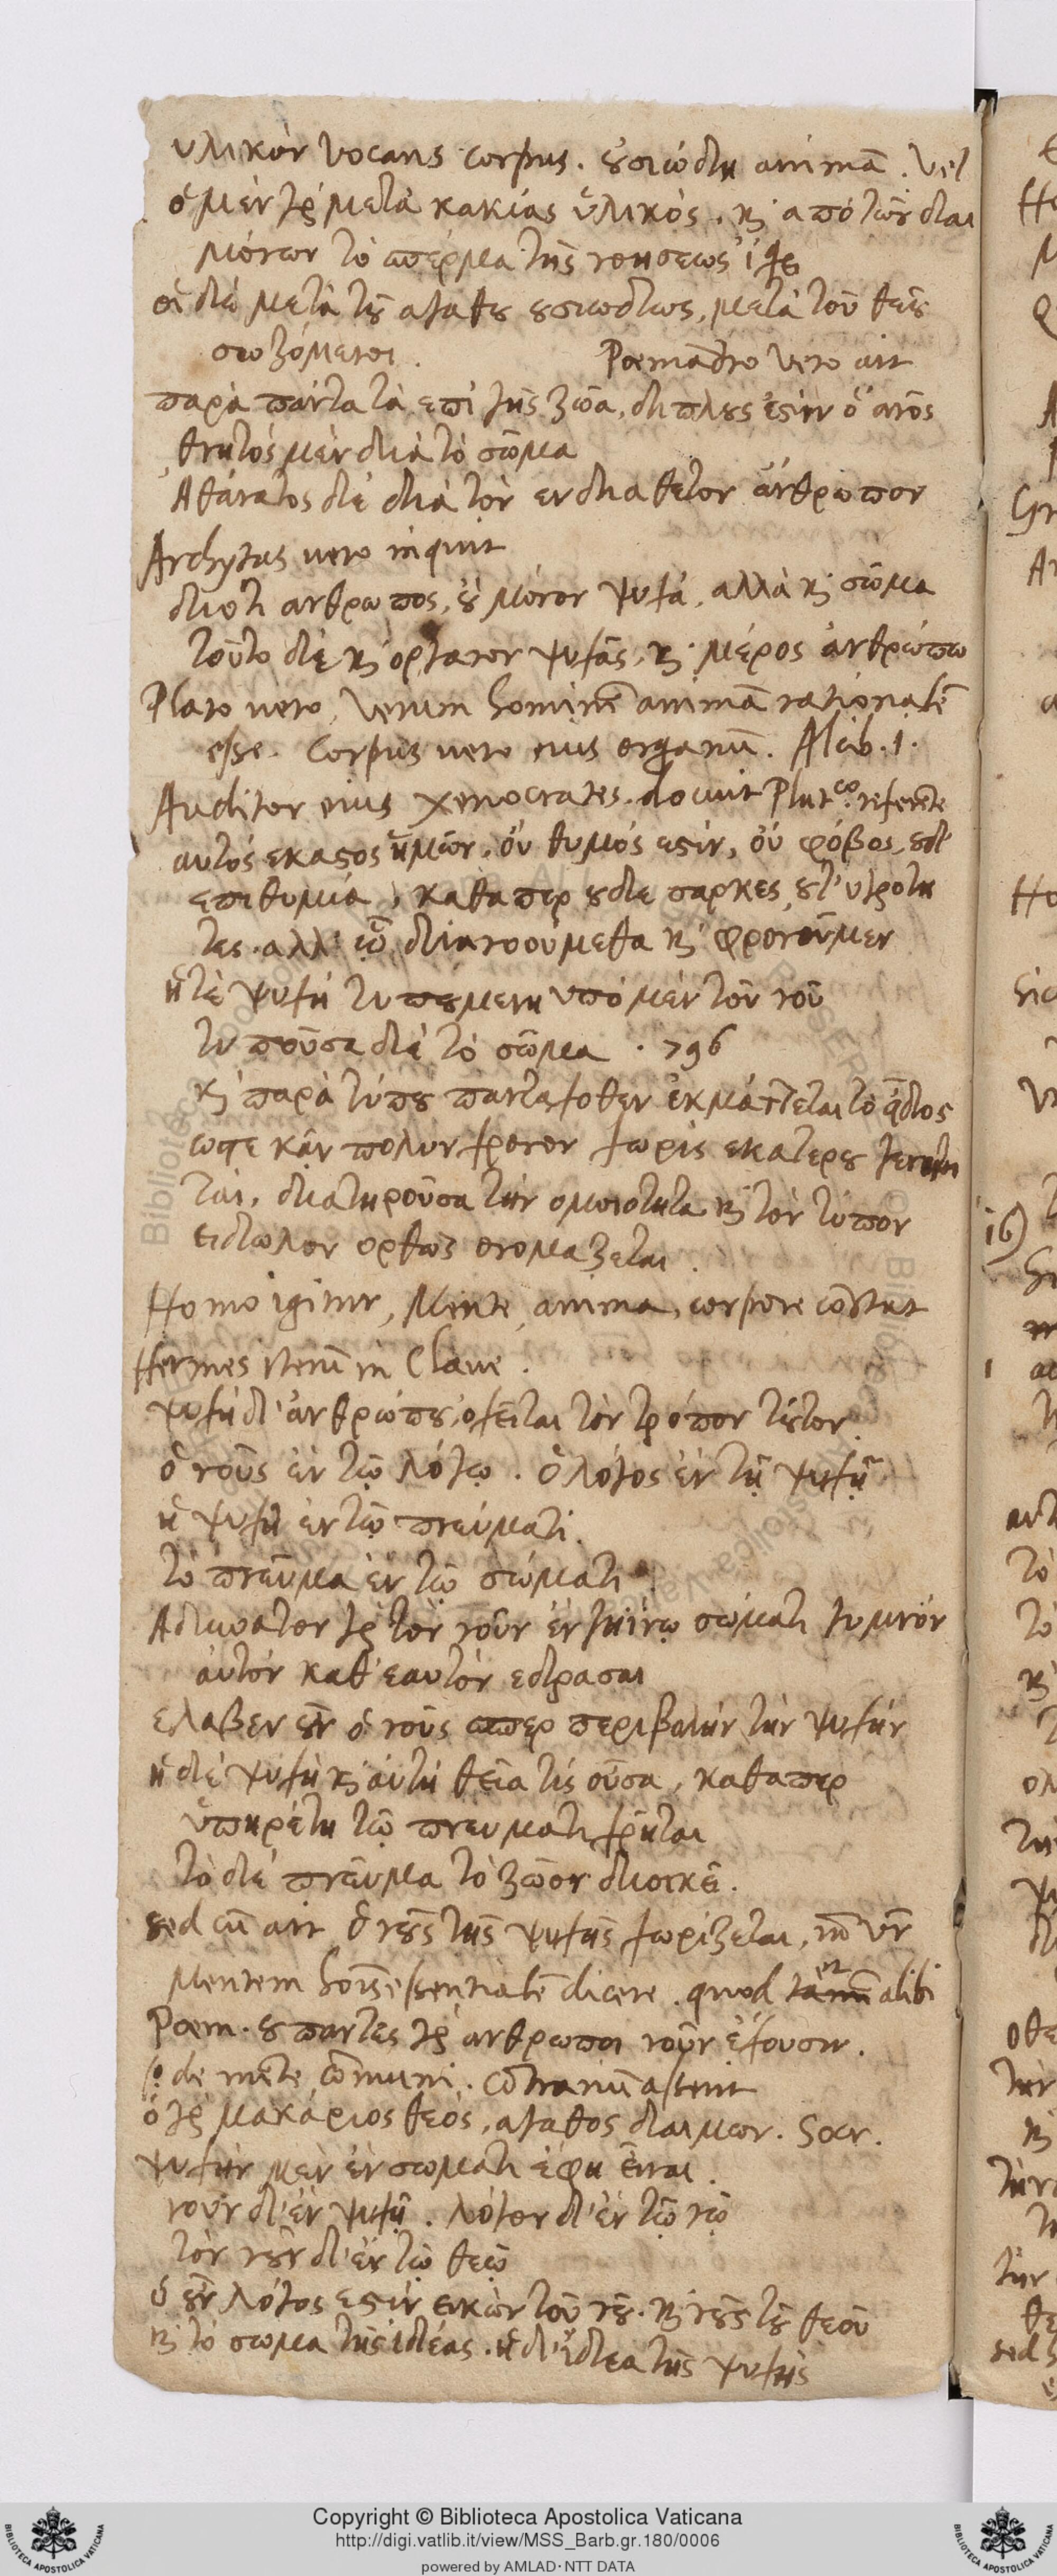 υλικὸν vocans corpus. ȣσιώδη animā. vel
ὁ μὲν γρ̃ μετὰ κακίας ὑλικὸς, κ̀ απὸ τῶν δαι
μόνων τὸ σπέρμα τῆς νοησεως ἴχε
οἱ δὲ μετὰ τȣ̃ αγαθȣ ȣσιωδως, μετὰ τοῦ θεȣ̃
σωζόμενοι. Poemādro vero ait
παρὰ πάντα τὰ επὶ γῆς ζῶα, διπλȣς ἐϛιν ὁ ἄνο̄ς
θνητὸς μὲν διὰ τὸ σῶμα
Αθάνατος δὲ διὰ τὸν ενδιαθετον ἄνθρωπον
Archytas vero inquit
διοτι ανθρωπος, ȣ̓ μόνον ψυχά, αλλὰ κ̀ σῶμα
τοῦτο δὲ κ̀ οργανον ψυχᾶς, κ̀ μέρος ἀνθρώπω
Plato vero, verum hominē animā rationalē
esse. Corpus vero eius organū. Alcib. 1.
Auditor eius Xenocrates docuit Plutco. referēte
αυτὸς εκαϛος ἡμῶν, οὐ θυμός εϛιν, οὐ φόβος, ȣδ'
επιθυμία, καθαπερ ȣδε σαρκες, ȣδ' υγροτη
τες. αλλ' ᾧ διανοούμεθα κ̀ φρονοῦμεν
ἥτε ψυχὴ τυπȣμενη υπὸ μὲν τοῦ νοῦ
τυποῦσα δὲ τὸ σῶμα . 796
κ̀ παρὰ τύπȣ πανταχοθεν ἐκμάττεται τὸ εἶδος
ωϛε κἂν πολυν χρονον χωρὶς εκατερȣ γενη
ται, διατηροῦσα τὴν ομοιοτητα κ̀ τὸν τύπον
ειδωλον ορθῶς ονομαζεται.
Homo igitur, Mente, anima, corpore cōstat
Hermes iterū in Clave.
ψυχὴ δ' ἀνθρώπȣ, οχεῖται τὸν τρόπον τȣ͂τον.
ὁ νοῦς ἐν τῷ λόγῳ. ὁ λόγος ἐν τῇ ψυχῇ
ἡ ψυχὴ ἐν τῷ πνεύματι.
τὸ πνεῦμα ἐν τῷ σώματι
Αδυνατον γρ̃ τὸν νοῦν ἐν γηίνῳ σώματι γυμνὸν
ἀυτὸν καθ' εαυτὸν εδρασαι
ελαβεν ȣ̃ν ὁ νοῦς ωσπερ περιβολὴν τὴν ψυχὴν
ἡ δὲ ψυχὴ κ̀ ἀυτὴ θεῖα τὶς οὖσα, καθαπερ
ὑπηρέτη τῷ πνευματι χρῆται
τὸ δὲ πνεῦμα τὸ ζῶον διοικεῖ.
sed cū ait ὁ νȣ̃ς τῆς ψυχῆς χωρίζεται, nō vr̃
Mentem hoīs essentialē dicere. quod alibi
Poem. ȣ παντες γρ̃ ανθρωποι νοῦν ἔχουσιν.
de mēte cōmuni. cōtrariū asserit
ὁ γρ̃ μακάριος θεὸς, αγαθος δαιμων. Socr.
ψυχὴν μὲν ἐν σωματι ἔφη εἶναι.
νοῦν δ' ἐν ψυχῇ. λόγον δ' ἐν τῷ νῷ
τὸν νȣ̃ν δ' ἐν τῷ θεῷ
ὁ ȣ̃ν λόγος εϛιν εικὼν τοῦ νȣ̃. κ̀ νȣ̃ς τȣ̃ θεοῦ
κ̀ τὸ σωμα τῆς ιδέας. ἡ δ' ἰδεα τῆς ψυχῆς
Copyright © Biblioteca Apostolica Vaticana
http://digi.vatlib.it/view/MSS_Barb.gr.180/0006
powered by AMLAD·NTT DATA